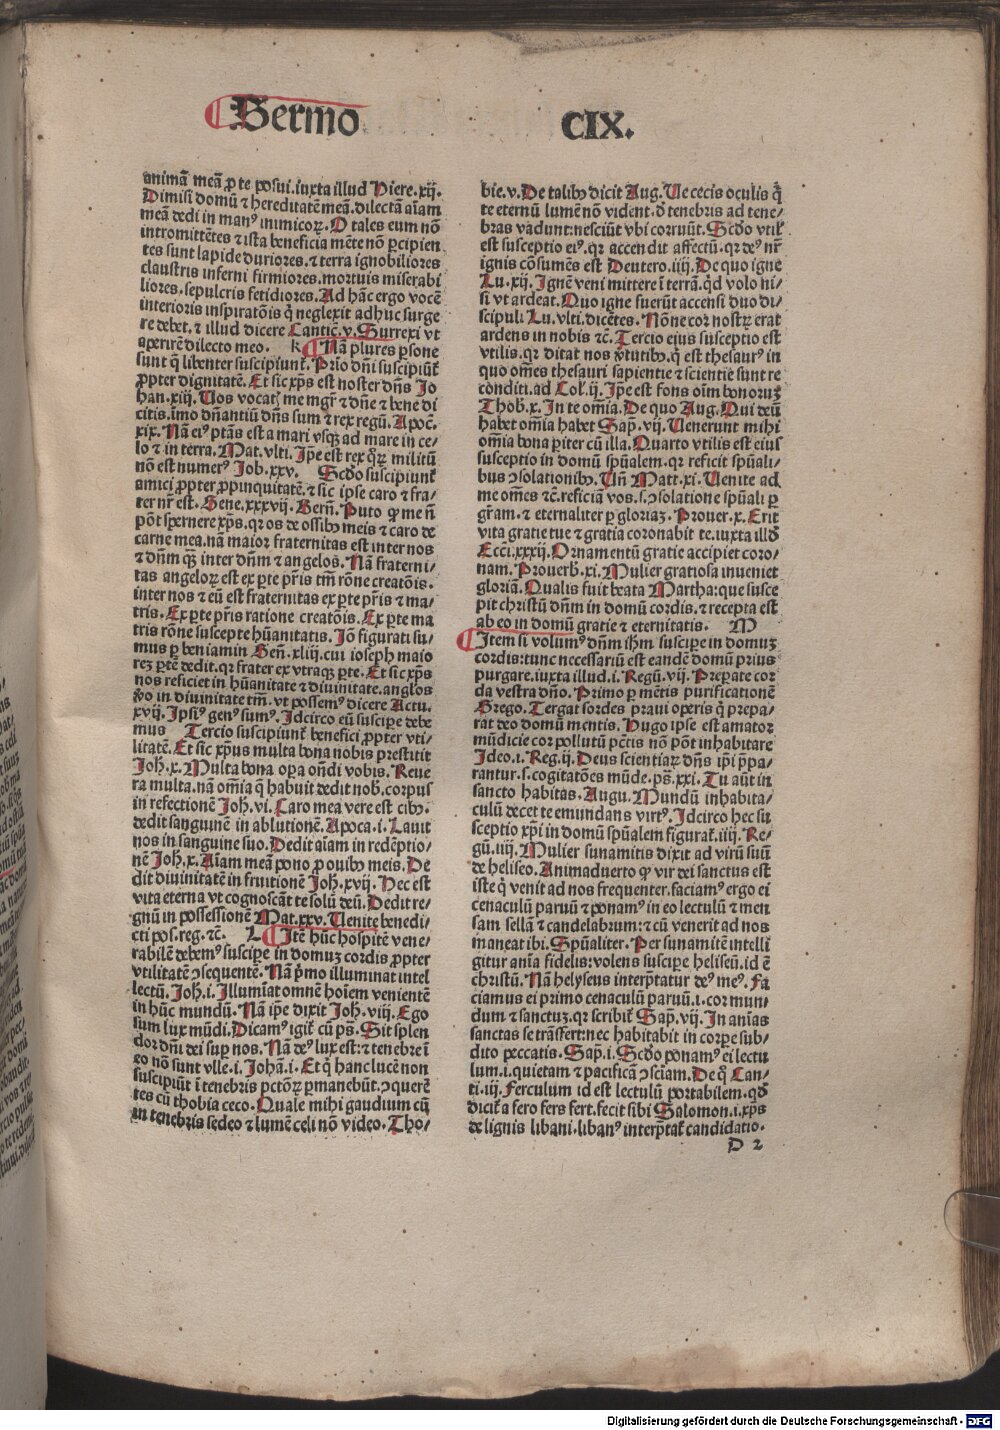 Sermo CIX.
animā meā ꝓ te posui. iuxta illud Hiere. xij.
Dimisi domū ⁊ hereditatē meā. dilectā aīam
meā dedi in manꝰ inimicoꝝ. O tales eum nō
intromittētes ⁊ ista beneficia mēte nō ꝑcipien
tes sunt lapide duriores. ⁊ terra ignobiliores
claustris inferni firmiores. mortuis miserabi
liores. sepulcris fetidiores. Ad hāc ergo vocē
interioris inspiratōis q̄ neglexit adhuc surge
re debet. ⁊ illud dicere Cantic̄. v. Surrexi vt
aperirē dilecto meo. K Nā plures ꝑsone
sunt q̄ libenter suscipiunt᷑. Prīo dn̄i suscipiūt᷑
ꝓpter dignitatē. Et sic xp̄s est noster dn̄s Jo
han. xiij. Uos vocatꝭ me mgr̄ ⁊ dn̄e ⁊ bene di
citis. īmo dn̄antiū dn̄s sum ⁊ rex regū. Apoc̄.
xix. Nā eiꝰ ptās est a mari vsqꝫ ad mare in ce-
lo ⁊ in terra. Mat. vlti. Ip̄e est rex q̄ꝝ militū
nō est numerꝰ Job. xxv. Scd̄o suscipiunt᷑
amici ꝓpter ꝓpinquitatē. ⁊ sic ipse caro ⁊ fra-
ter nr̄ est. Gene. xxxvij. Bern̄. Puto ꝙ me n̄
pōt sꝑnere xp̄s. qꝛ os de ossibꝰ meis ⁊ caro de
carne mea. nā maior fraternitas est inter nos
⁊ dn̄m qꝫ inter dn̄m ⁊ angelos. Nā fraterni-
tas angeloꝝ est ex ꝑte pr̄is tm̄ rōne creatōis.
inter nos ⁊ eū est fraternitas ex ꝑte pr̄is ⁊ ma-
tris. Ex ꝑte pr̄is ratione creatōis. Ex ꝑte ma
tris rōne suscepte hūanitatis. Jō figurati su-
mus ꝑ beniamin Gen̄. xliij. cui ioseph maio
reꝫ ꝑtē dedit. qꝛ frater ex vtraqꝫ ꝑte. Et sic xp̄s
nos reficiet in hūanitate ⁊ diuinitate. anglos
ꝟo in diuinitate tm̄. vt possemꝰ dicere Actu.
xvij. Ipsiꝰ genꝰ sumꝰ. Idcirco eū suscipe debe
mus Tercio suscipiunt᷑ benefici ꝓpter vti-
litatē. Et sic xp̄us multa bona nobis prestitit
Joh̄. x. Multa bona oꝑa on̄di vobis. Reue
ra multa. nā om̄ia q̄ habuit dedit nob̄. corpus
in refectionē Joh̄. vi. Caro mea vere est cibꝰ.
dedit sanguinē in ablutionē. Apoca. i. Lauit
nos in sanguine suo. Dedit aīam in redēptio-
nē Joh̄. x. Aīam meā pono ꝓ ouibꝰ meis. De
dit diuinitatē in fruitionē Joh̄. xvij. Hec est
vita eterna vt cognoscāt te solū deū. Dedit re-
gnū in possessionē Mat. xxv. Uenite benedi-
cti pos. reg. ⁊c̄. L Itē hūc hospitē vene-
rabilē debemꝰ suscipe in domuꝫ cordis ꝓpter
vtilitatē ↄsequentē. Nā pͥmo illuminat intel
lectū. Joh̄. i. Illumīat omnē hoīem venientē
in hūc mundū. Nā ip̄e dixit Joh̄. viij. Ego
sum lux mūdi. Dicamꝰ igit᷑ cū ps̄. Sit splen
dor dn̄i dei sup nos. Nā deꝰ lux est: ⁊ tenebre ī
eo nō sunt vlle. i. Johā. i. Et q̄ hanc lucē non
suscipiūt ī tenebris pctōꝝ ꝑmanebūt. ↄquerē
tes cū thobia ceco. Quale mihi gaudium cū
in tenebris sedeo ⁊ lumē celi nō video. Tho-
bie. v. De talibꝰ dicit Aug. Ue cecis oculis q̄
te eternū lumē nō vident. d̄ tenebris ad tene/
bras vadunt: nesciūt vbi corruūt. Scd̄o vtil᷑
est susceptio eiꝰ. qꝛ accendit affectū. qꝛ deꝰ nr̄
ignis cōsumēs est Deutero. iiij. De quo igne
Lu. xij. Ignē veni mittere ī terrā. qd̄ volo ni-
si vt ardeat. Quo igne fuerūt accensi duo di-
scipuli Lu. vlti. dicētes. Nōne cor nostꝝ erat
ardens in nobis ⁊c̄. Tercio eius susceptio est
vtilis. qꝛ ditat nos ꝟtutibꝰ. q̄ est thesaurꝰ in
quo om̄es thesauri sapientie ⁊ scientie sunt re
cōnditi. ad Col̄. ij. Ip̄e est fons oīm bonoruꝫ
Thob. x. In te om̄ia. De quo Aug. Qui deū
habet om̄ia habet Sap̄. vij. Uenerunt mihi
om̄ia bona ꝑiter cū illa. Quarto vtilis est eius
susceptio in domū spūalem. qꝛ reficit spūali-
bus ↄsolationibꝰ. Un̄ Matt. xi. Uenite ad
me om̄es ⁊c̄. reficiā vos. s. ↄsolatione spūali ꝑ
gr̄am. ⁊ eternaliter ꝑ gloriaꝫ. Prouer. x. Erit
vita gratie tue ⁊ gratia coronabit te. iuxta illd̄
Ecci. xxxij. Ornamentū gratie accipiet coro-
nam. Prouerb̄. xi. Mulier gratiosa inueniet
gloriā. Qualis fuit beata Martha: que susce
pit christū dn̄m in domū cordis. ⁊ recepta est
ab eo in domū gratie ⁊ eternitatis. M
Item si volumꝰ dn̄m ih̄m suscipe in domuꝫ
cordis: tunc necessariū est eandē domū prius
purgare. iuxta illud. i. Regū. vij. Prepate cor
da vestra dn̄o. Primo ꝑ mētis purificationē
Grego. Tergat sordes praui operis q̄ prepa-
rat deo domū mentis. Hugo ipse est amator
mūdicie cor pollutū pctīs nō pōt inhabitare
Ideo. i. Reg. ij. Deus scientiaꝝ dn̄s ip̄i p̄pa-
rantur. s. cogitatōes mūde. ps̄. xxi. Tu aūt in
sancto habitas. Augu. Mundū inhabita/
culū decet te emundans virtꝰ. Idcirco hec su
sceptio xp̄i in domū spūalem figurat᷑. iiij. Re-
gū. iiij. Mulier sunamitis dixit ad virū suū
de heliseo. Animaduerto ꝙ vir dei sanctus est
iste q̄ venit ad nos frequenter. faciamꝰ ergo ei
cenaculū paruū ⁊ ponamꝰ in eo lectulū ⁊ men
sam sellā ⁊ candelabrum: ⁊ cū venerit ad nos
maneat ibi. Spūaliter. Per sunamitē intelli
gitur anīa fidelis: volens suscipe heliseū. id ē
christū. Nā helyseus interp̄tatur deꝰ meꝰ. Fa
ciamus ei primo cenaculū paruū. i. cor mun-
dum ⁊ sanctuꝫ. qꝛ scribit᷑ Sap̄. vij. In anīas
sanctas se trāsfert: nec habitabit in corꝑe sub-
dito peccatis. Sap̄. i. Scd̄o ponamꝰ ei lectu
lum. i. quietam ⁊ pacificā ↄsc̄iam. De q̄ Can-
ti. iij. Ferculum id est lectulū portabilem. qd̄
dicit᷑ a fero fers fert. fecit sibi Salomon. i. xp̄s
de lignis libani. libanꝰ interp̄tat᷑ candidatio.
D 2
Digitalisierung gefördert durch die Deutsche Forschungsgemeinschaft - DFG